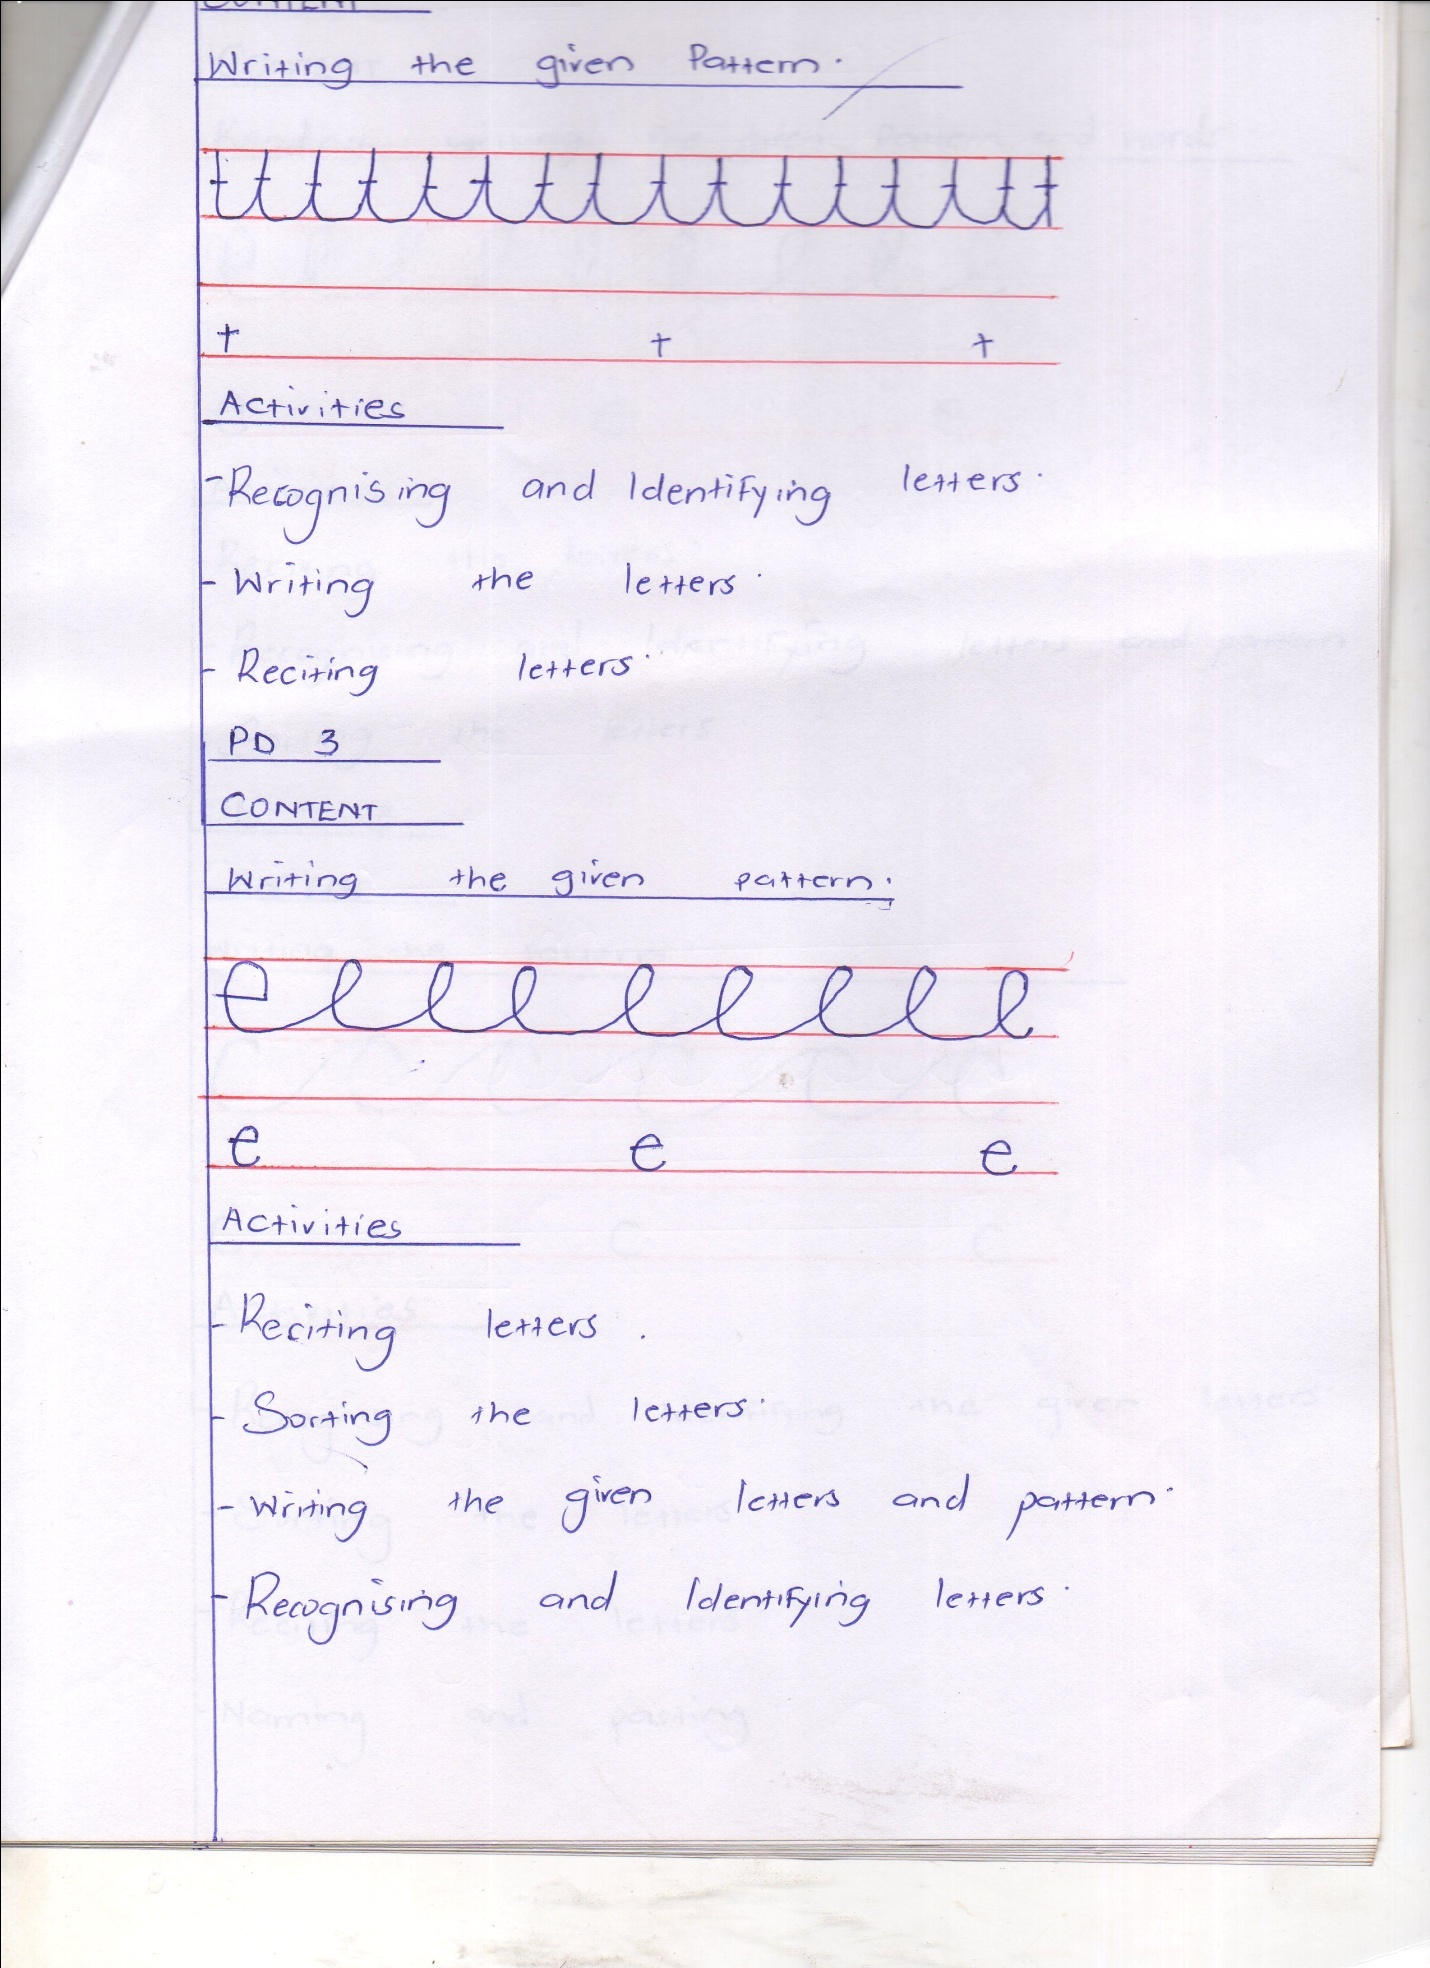 CONTENT
Writing the given Pattern.
t t t t t t t t t t t t t t t t
t t t
Activities
- Recognising and Identifying letters.
- Writing the letters.
- Reciting letters.
PD 3
CONTENT
Writing the given pattern.
e e e e e e e e e
e e e
Activities
- Reciting letters.
- Sorting the letters.
- Writing the given letters and pattern.
- Recognising and Identifying letters.